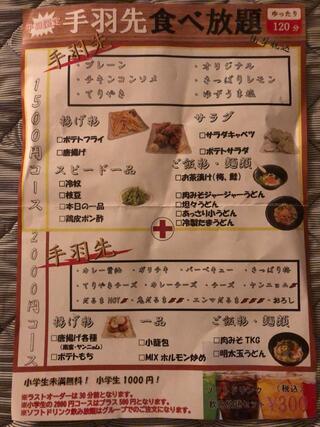 手羽先食べ放題
ゆったり
120分
手羽先
・プレーン ・オリジナル
・チキンコンソメ ・さっぱりレモン
・てりやき ・ゆずうま塩
1500円コース
揚げ物 サラダ
□ポテトフライ □サラダキャベツ
□唐揚げ □ポテトサラダ
スピード一品 ご飯物・麺類
□冷奴 □お茶漬け(梅、鮭)
□枝豆 □肉みそジャージャーうどん
□本日の一品 □坦々うどん
□鶏皮ポン酢 □あっさり小うどん
□冷製たまうどん
2000円コース
手羽先
・カレー醤油 ・ガリチキ ・バーベキュー ・さっぱり梅
・てりやきチーズ ・カレーチーズ ・チリチーズ
・だるまHOT ・だるま ・エンマだるま ・おろし
揚げ物 一品 ご飯物・麺類
□唐揚げ各種 □小籠包 □肉みそTKG
□ポテトもち □MIXホルモン炒め □明太玉うどん
小学生未満無料! 小学生1000円!
※ラストオーダーは30分前となります。
※小学生の2000円コースはプラス500円となります。
※ソフトドリンク飲み放題はグループでのご注文になります。
(税込)
¥300